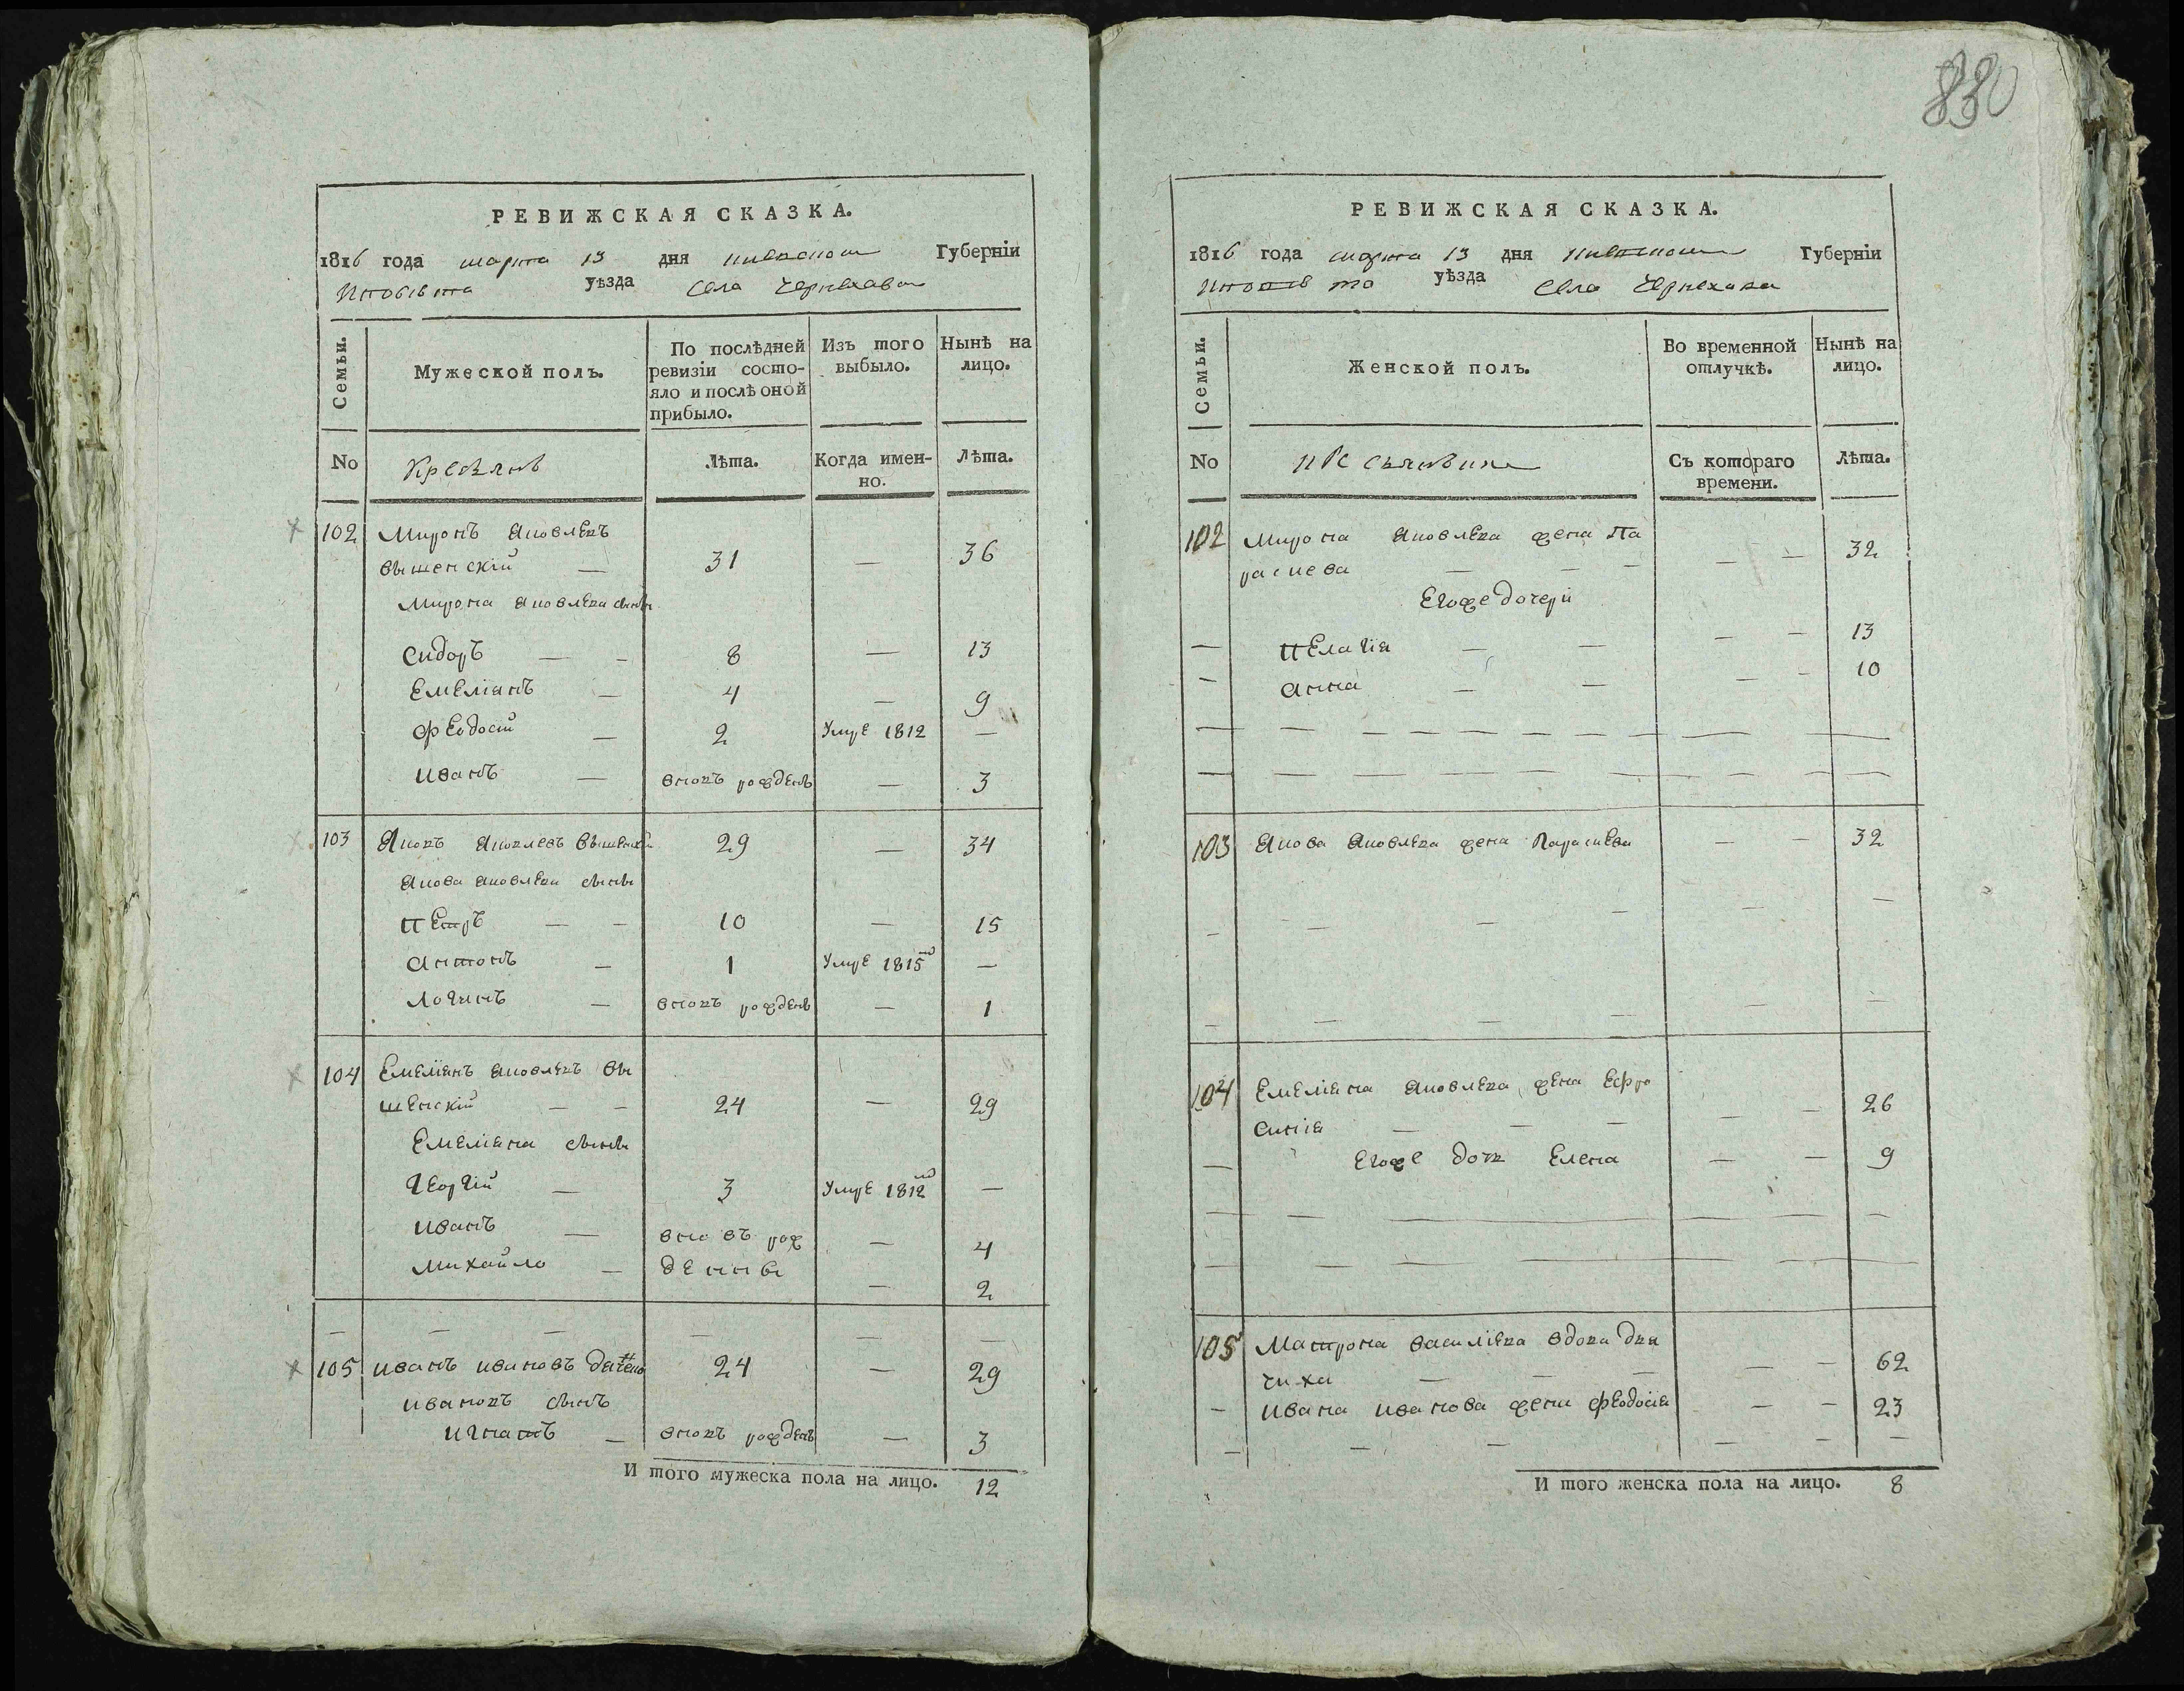 880
РЕВИЖСКАЯ СКАЗКА.
1816 года марта 13 дня Киевской Губерніи
уѣзда села Черняхова
Семьи.
Мужеской полъ.
По послѣдней ревизіи состояло и послѣ оной прибыло.
Изъ того выбыло.
Нынѣ на лицо.
No
Лѣта.
Когда именно.
Лѣта.
102 Миронъ Яковлевъ
вышенскій — 31 — 36
Мирона Яковлева сыны
Сидоръ — - 8 — 13
Емеліянъ — 4 — 9
Феодосій — 2 Умре 1812 —
Иванъ — вновь рожденъ — 3
103 Яковъ Яковлевъ вышенскій 29 — 34
Якова Яковлева сыны
Петръ — - 10 — 15
Антонъ — 1 Умре 1815го —
Логинъ — вновь рожденъ — 1
104 Емеліянъ Яковлевъ вы
шенскій — - 24 — 29
Емеліяна сыны
Георгій — 3 Умре 1812го —
Иванъ — вновь рож — 4
Михайло — денны — 2
— — — — — —
105 Иванъ Ивановъ 24 — 29
Ивановъ сынъ
Игнатъ — вновь рожденъ — 3
И того мужеска пола на лицо. 12
РЕВИЖСКАЯ СКАЗКА.
1816 года марта 13 дня Киевской Губерніи
уѣзда села Черняхова
Семьи.
Женской полъ.
Во временной отлучкѣ.
Нынѣ на лицо.
No
Съ котораго времени.
Лѣта.
102 Мирона Яковлева жена Па
раскева — — - - — 32
Егоже дочери
— Пелагія — — - — 13
- Анна — — - - 10
103 Якова Яковлева жена Параскева — - 32
104 Емеліяна Яковлева жена Ефро
синія — — — — — 26
— Егоже дочь Елена — — 9
105 Матрона Василіева вдова Дья
чиха — — — — — 62
- Ивана Иванова жена Феодосія — - 23
И того женска пола на лицо. 8